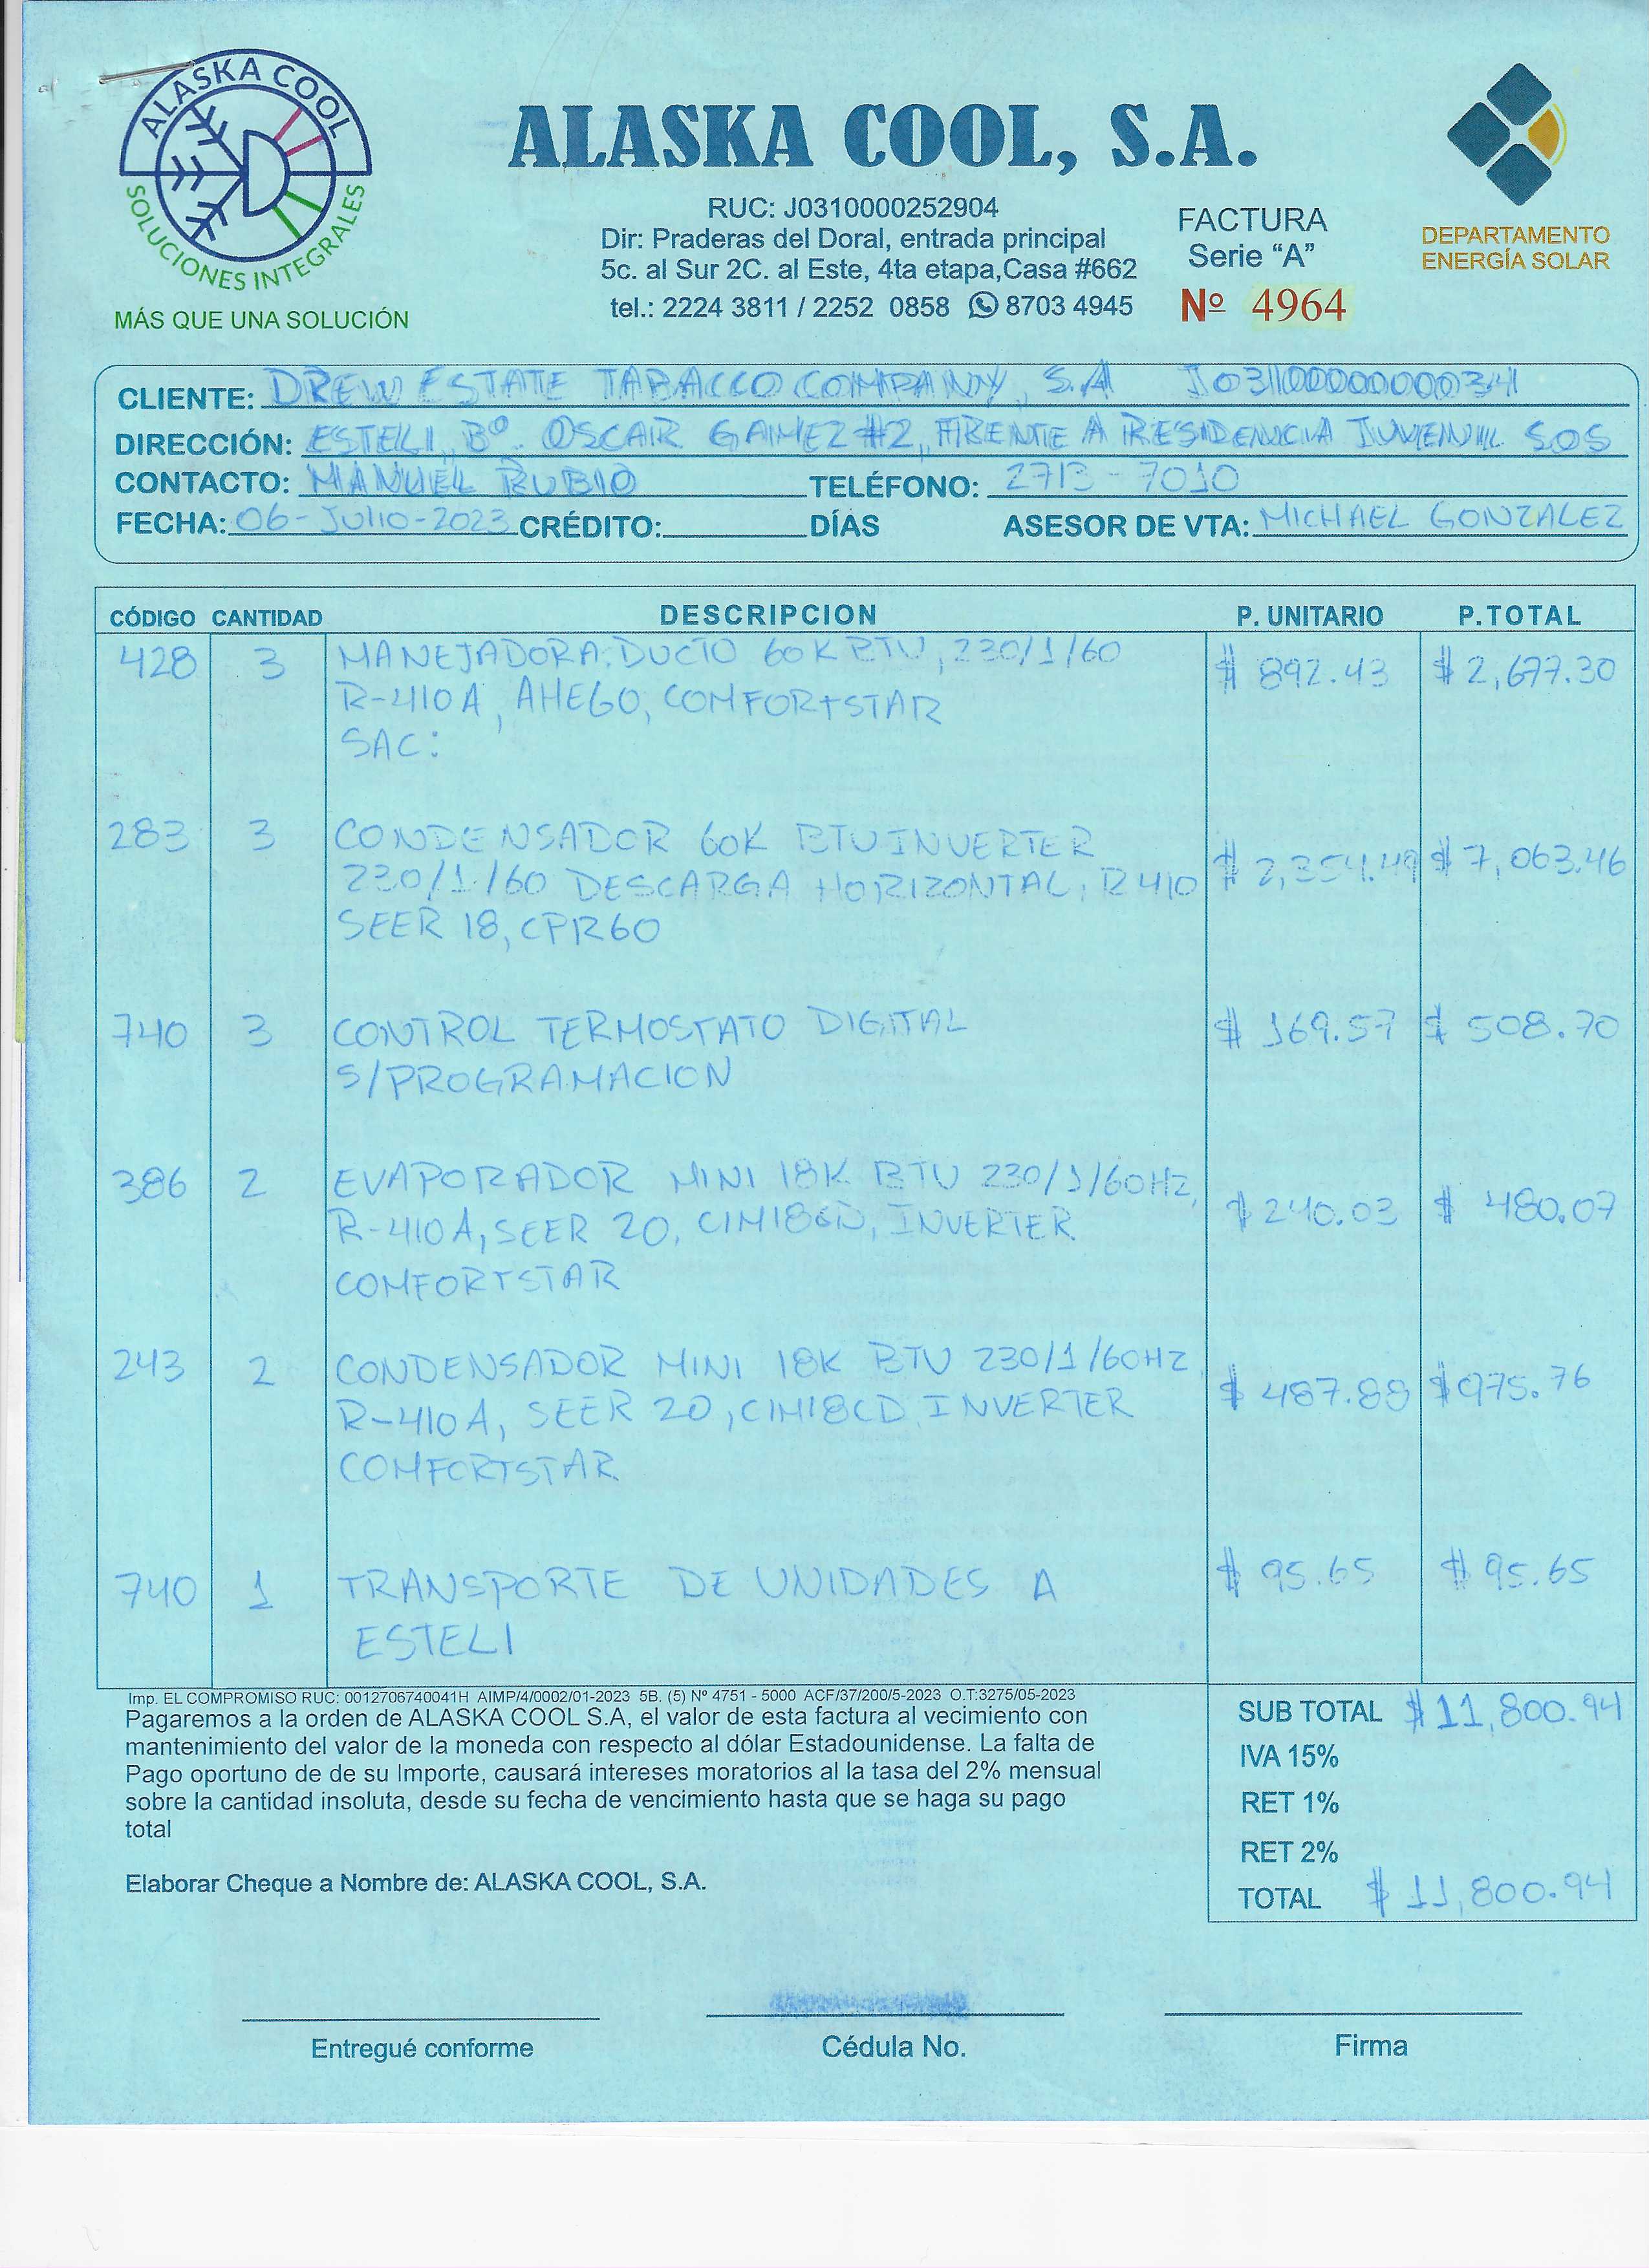 ALASKA COOL
SOLUCIONES INTEGRALES
MÁS QUE UNA SOLUCIÓN
ALASKA COOL, S.A.
RUC: J0310000252904
Dir: Praderas del Doral, entrada principal
5c. al Sur 2C. al Este, 4ta etapa,Casa #662
tel.: 2224 3811 / 2252 0858 8703 4945
FACTURA
Serie “A”
Nº 4964
DEPARTAMENTO
ENERGÍA SOLAR
CLIENTE: DREW ESTATE TABACCO COMPANY, S.A
DIRECCIÓN: ESTELI, Bº. OSCAR GAMEZ #2, FRENTE A RESIDENCIA JUVENIL SOS
CONTACTO: MANUEL RUBIO TELÉFONO: 2713-7010
FECHA: 06-Julio-2023 CRÉDITO: DÍAS ASESOR DE VTA: MICHAEL GONZALEZ
CÓDIGO CANTIDAD DESCRIPCION P. UNITARIO P.TOTAL
428 3 MANEJADORA DUCTO 60K BTU, 230/1/60 $ 892.43 $ 2,677.30
R-410A, AHE60, COMFORTSTAR
SAC:
283 3 CONDENSADOR 60K BTU INVERTER $ 7,063.46
230/1/60 DESCARGA HORIZONTAL, R410
SEER 18, CPR60
740 3 CONTROL TERMOSTATO DIGITAL $ 169.57 $ 508.70
S/PROGRAMACION
386 2 EVAPORADOR MINI 18K BTU 230/1/60HZ, $ 240.03 $ 480.07
R-410A, SEER 20, INVERTER
COMFORTSTAR
243 2 CONDENSADOR MINI 18K BTU 230/1/60HZ $ 487.88 $ 975.76
R-410A, SEER 20, CIM18CD INVERTER
COMFORTSTAR
740 1 TRANSPORTE DE UNIDADES A $ 95.65 $ 95.65
ESTELI
Imp. EL COMPROMISO RUC: 0012706740041H AIMP/4/0002/01-2023 5B. (5) Nº 4751 - 5000 ACF/37/200/5-2023 O.T:3275/05-2023
Pagaremos a la orden de ALASKA COOL S.A, el valor de esta factura al vecimiento con
mantenimiento del valor de la moneda con respecto al dólar Estadounidense. La falta de
Pago oportuno de de su Importe, causará intereses moratorios al la tasa del 2% mensual
sobre la cantidad insoluta, desde su fecha de vencimiento hasta que se haga su pago
total
Elaborar Cheque a Nombre de: ALASKA COOL, S.A.
SUB TOTAL $ 11,800.94
IVA 15%
RET 1%
RET 2%
TOTAL $ 11,800.94
Entregué conforme
Cédula No.
Firma